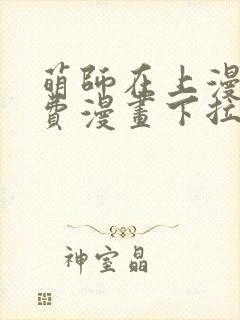 萌師在上漫
費漫畫下拉
神室晶